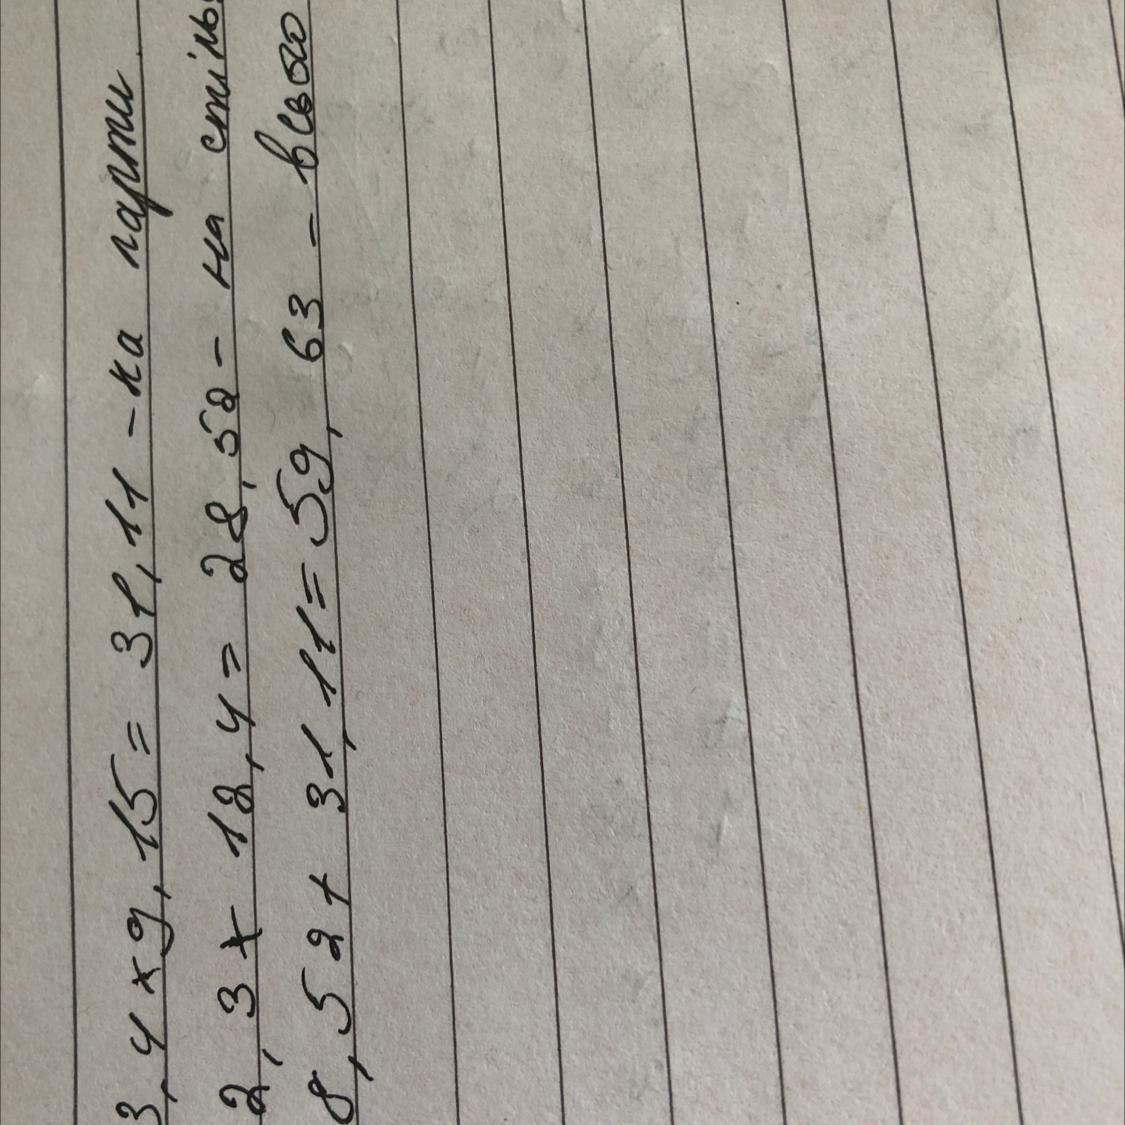 3,4 x 9,15 = 31,11 - на парти
2,3 x 12,4 = 28,52 - на стіль
8,52 + 31,11 = 59,63 - всього